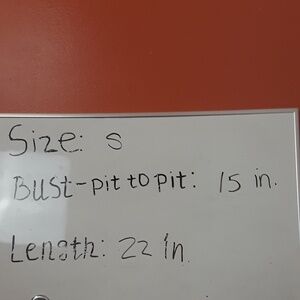 Size: S
Bust-pit to pit: 15 in.
Length: 22 in.